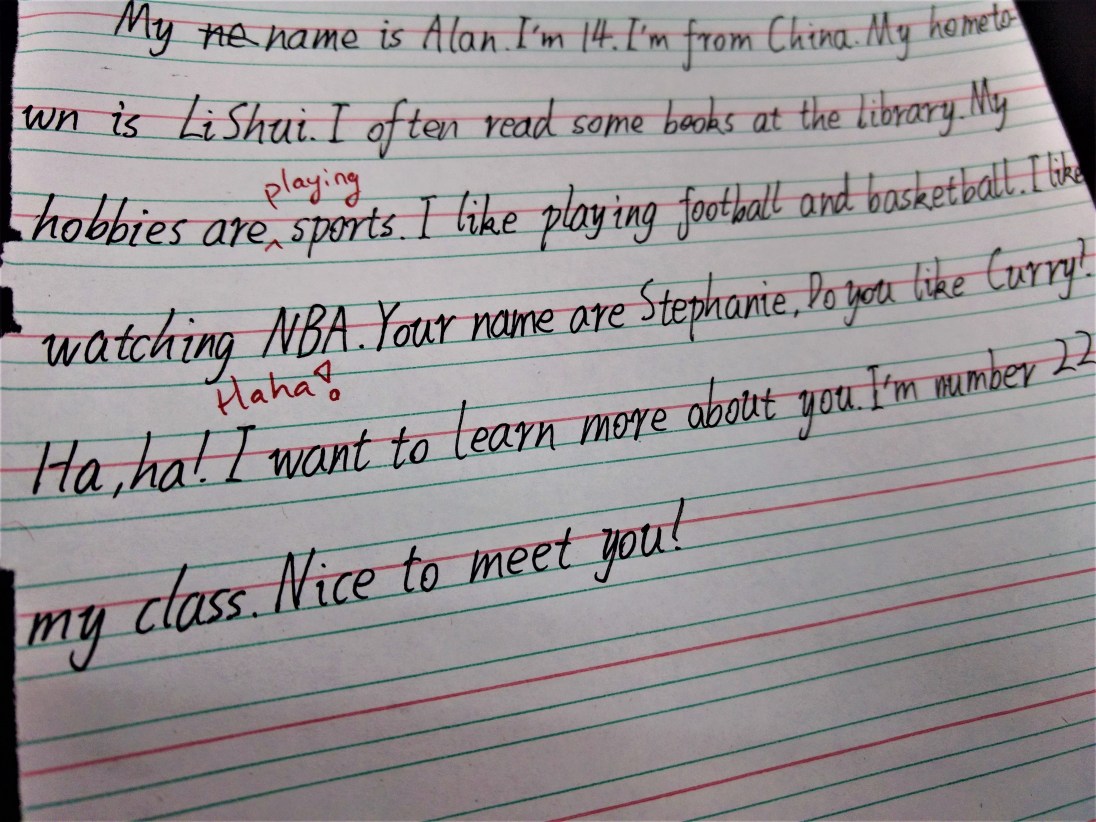 My ne name is Alan. I'm 14. I'm from China. My hometo-
wn is LiShui. I often read some books at the library. My
playing
hobbies are sports. I like playing football and basketball. I like
watching NBA. Your name are Stephanie, Do you like Curry?
Haha!
Ha, ha! I want to learn more about you. I'm number 22
my class. Nice to meet you!